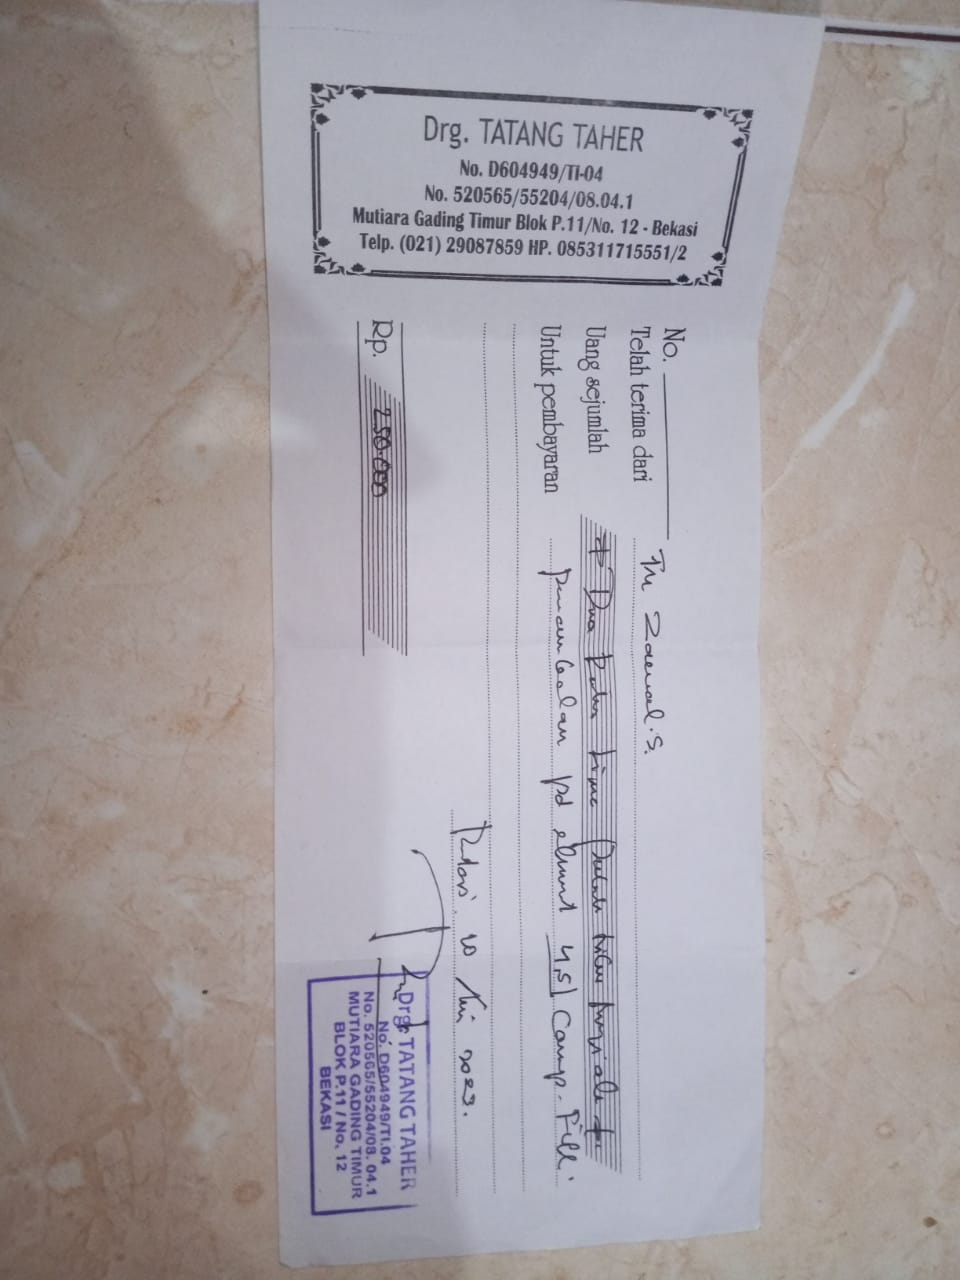 Drg. TATANG TAHER
No. D604949/TI-04
No. 520565/55204/08.04.1
Mutiara Gading Timur Blok P.11/No. 12 - Bekasi
Telp. (021) 29087859 HP. 085311715551/2
No.
Telah terima dari Tn Zaenal.S.
Uang sejumlah Dua Ratus Lima Puluh Ribu Rupiah
Untuk pembayaran penambalan pd element 4,5| Comp-Fill.
10 2023.
Rp. 250.000
Drg. TATANG TAHER
No. D604949/TI.04
No. 520565/55204/08. 04.1
MUTIARA GADING TIMUR
BLOK P.11 / No. 12
BEKASI